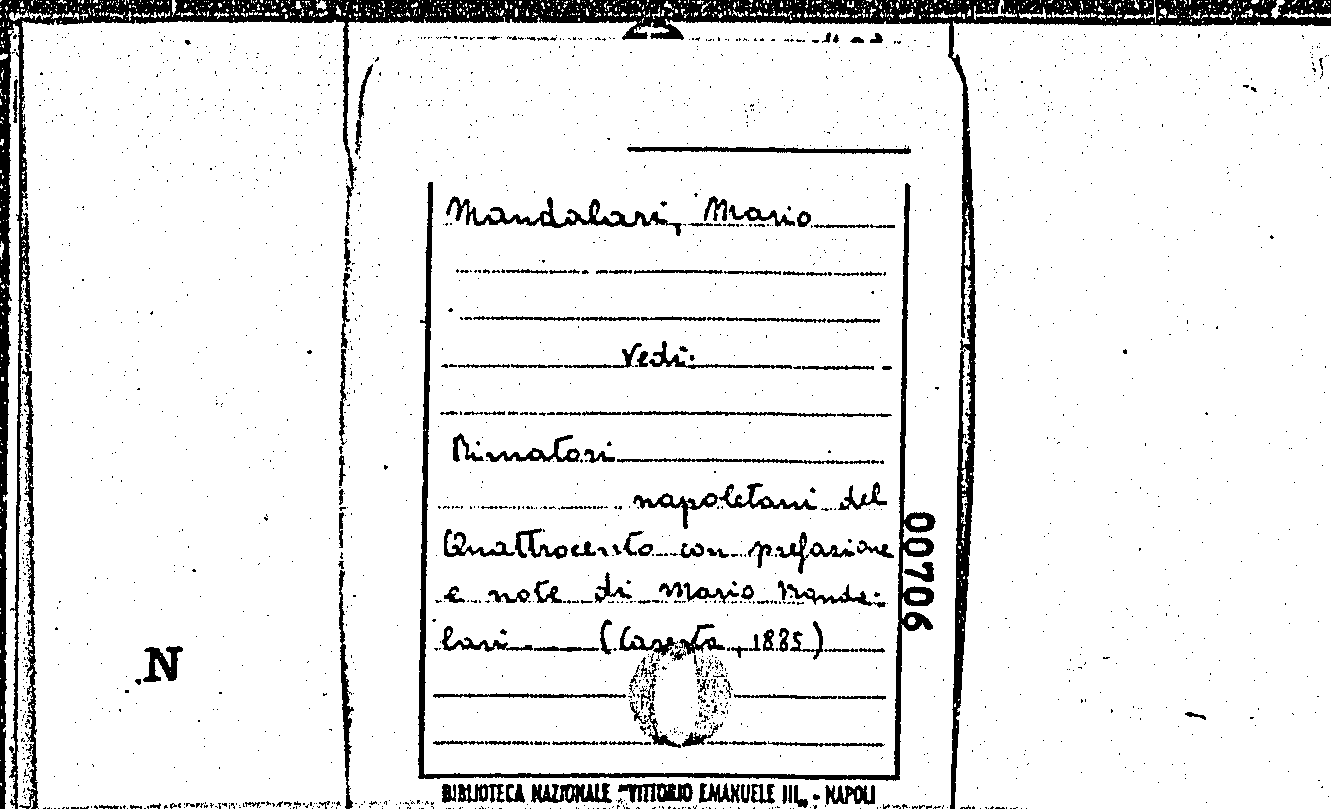 Mandalari, Mario
Vedi:
Rimatori
napoletani del
Quattrocento con prefazione
e note di Mario Manda-
lari (Caserta, 1885)
00706
N
BIBLIOTECA NAZIONALE "VITTORIO EMANUELE III„ - NAPOLI